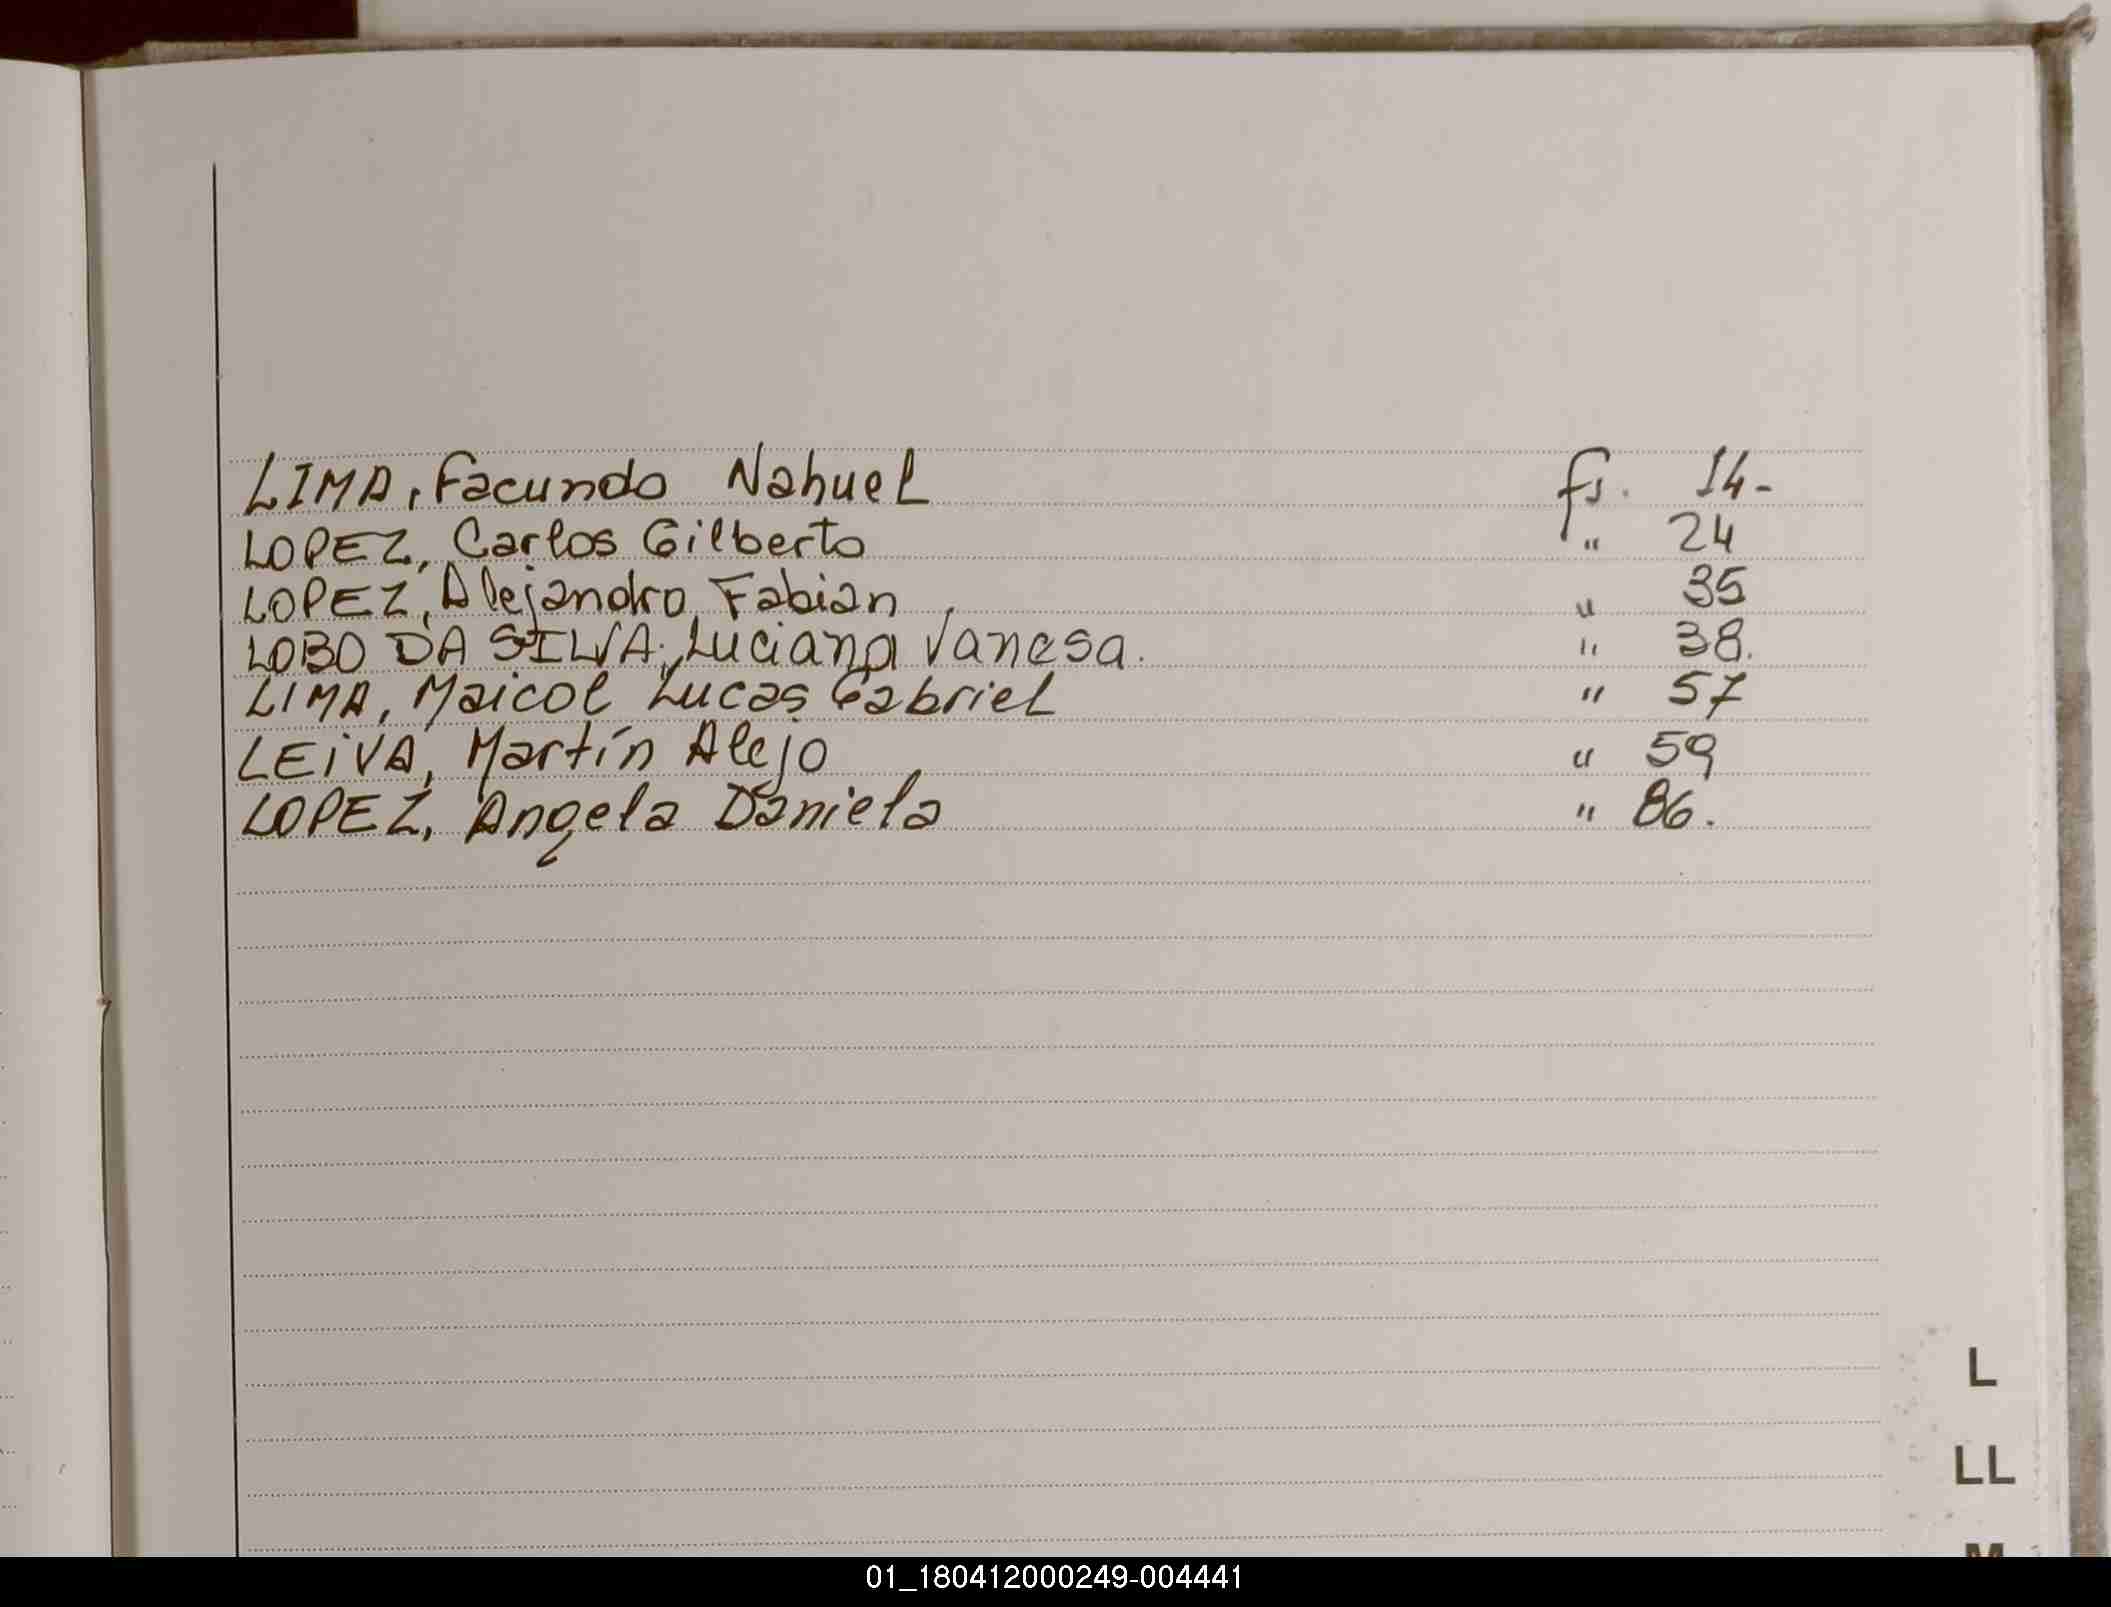 LIMA, Facundo Nahuel fs. 14-
LOPEZ, Carlos Gilberto " 24
LOPEZ, Alejandro Fabian " 35
LOBO DA SILVA, Luciana Vanesa. " 38.
LIMA, Maicol Lucas Gabriel " 57
LEiVA, Martín Alejo " 59
LOPEZ, Angela Daniela " 86.
L
LL
M
01_180412000249-004441